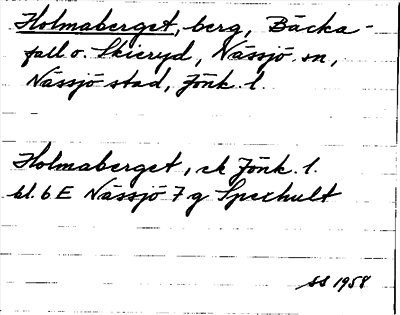 Holmaberget, berg, Bäcka-
fall o. Skieryd, Nässjö sn,
Nässjö stad, Jönk. l.
Holmaberget, ek Jönk. l.
bl. 6 E Nässjö 7 g Spexhult
SS 1958